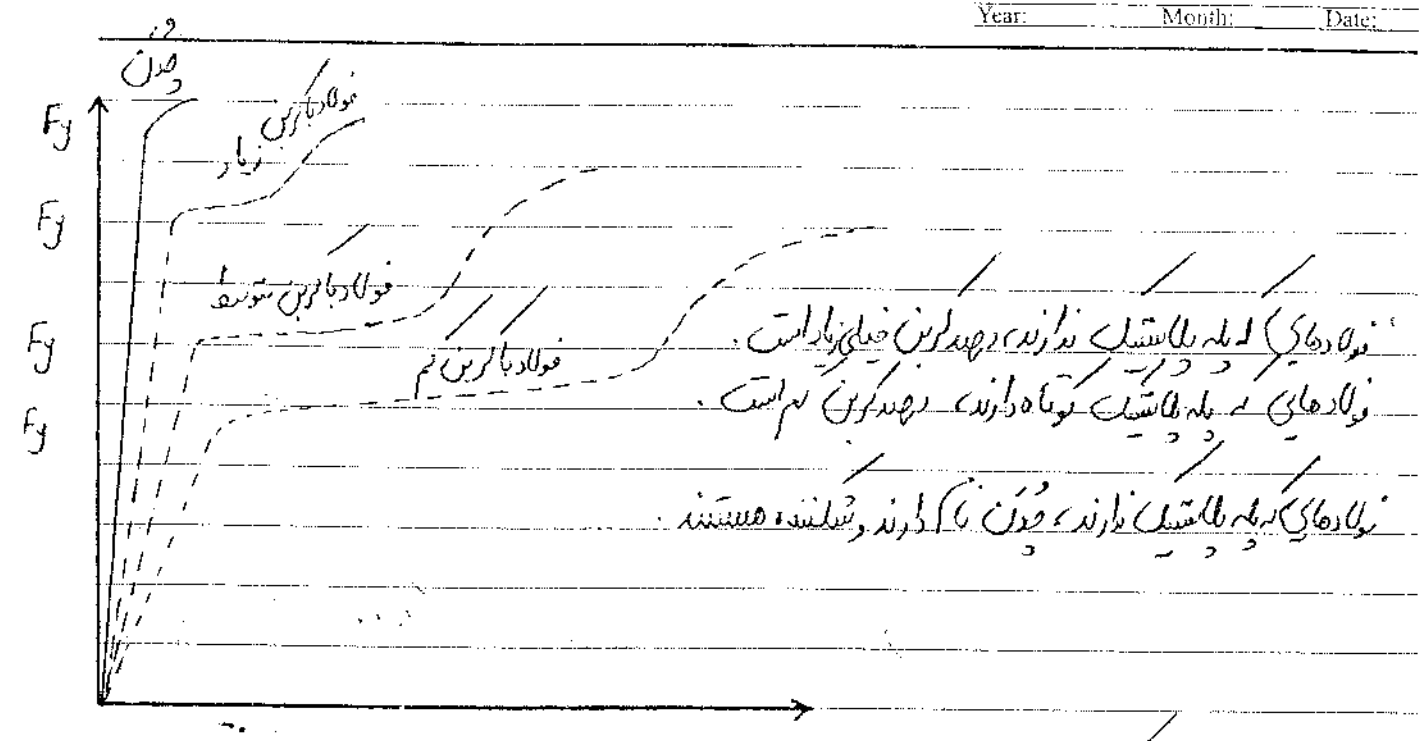 Year: Month: Date:
چدن
Fy
فولاد با کربن
زیاد
Fy
فولاد با کربن متوسط
Fy
فولاد با کربن کم
Fy
فولادهایی که پله پلاستیک ندارند، درصد کربن خیلی زیاد است.
فولادهایی که پله پلاستیک کوتاه دارند، درصد کربن کم است.
فولادهایی که پله پلاستیک ندارند، چُدَن نام دارند و شکننده هستند.